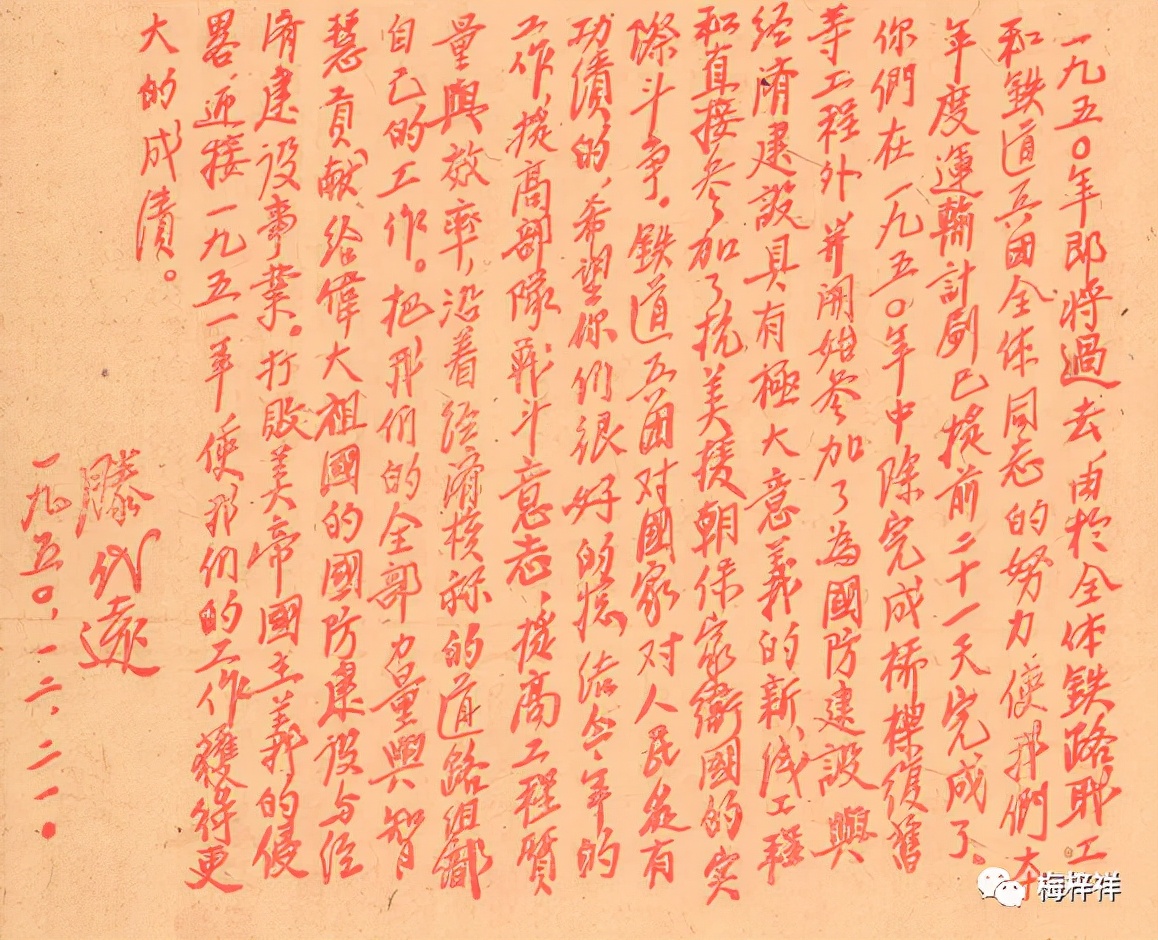 一九五〇年即将過去由於全体鉄路职工
和鉄道兵团全体同志的努力使我們本
年度運輸計劃已提前二十一天完成了。
你們在一九五〇年中除完成桥樑復舊
等工程外并開始参加了為國防建設興
经济建設具有極大意義的新线工程
和直接参加了抗美援朝保家衛國的实
際斗争。鉄道兵团对國家对人民是有
功績的,希望你们很好的总结今年的
工作,提高部隊战斗意志,提高工程質
量與效率,沿着经济核祘的道路组織
自己的工作。把我们的全部力量與智
慧貢献给偉大祖國的國防建设与经
济建设事業。打败美帝國主義的侵
畧,迎接一九五一年使我们的工作獲得更
大的成績。
滕代遠
一九五〇,一二,二一。
梅梓祥